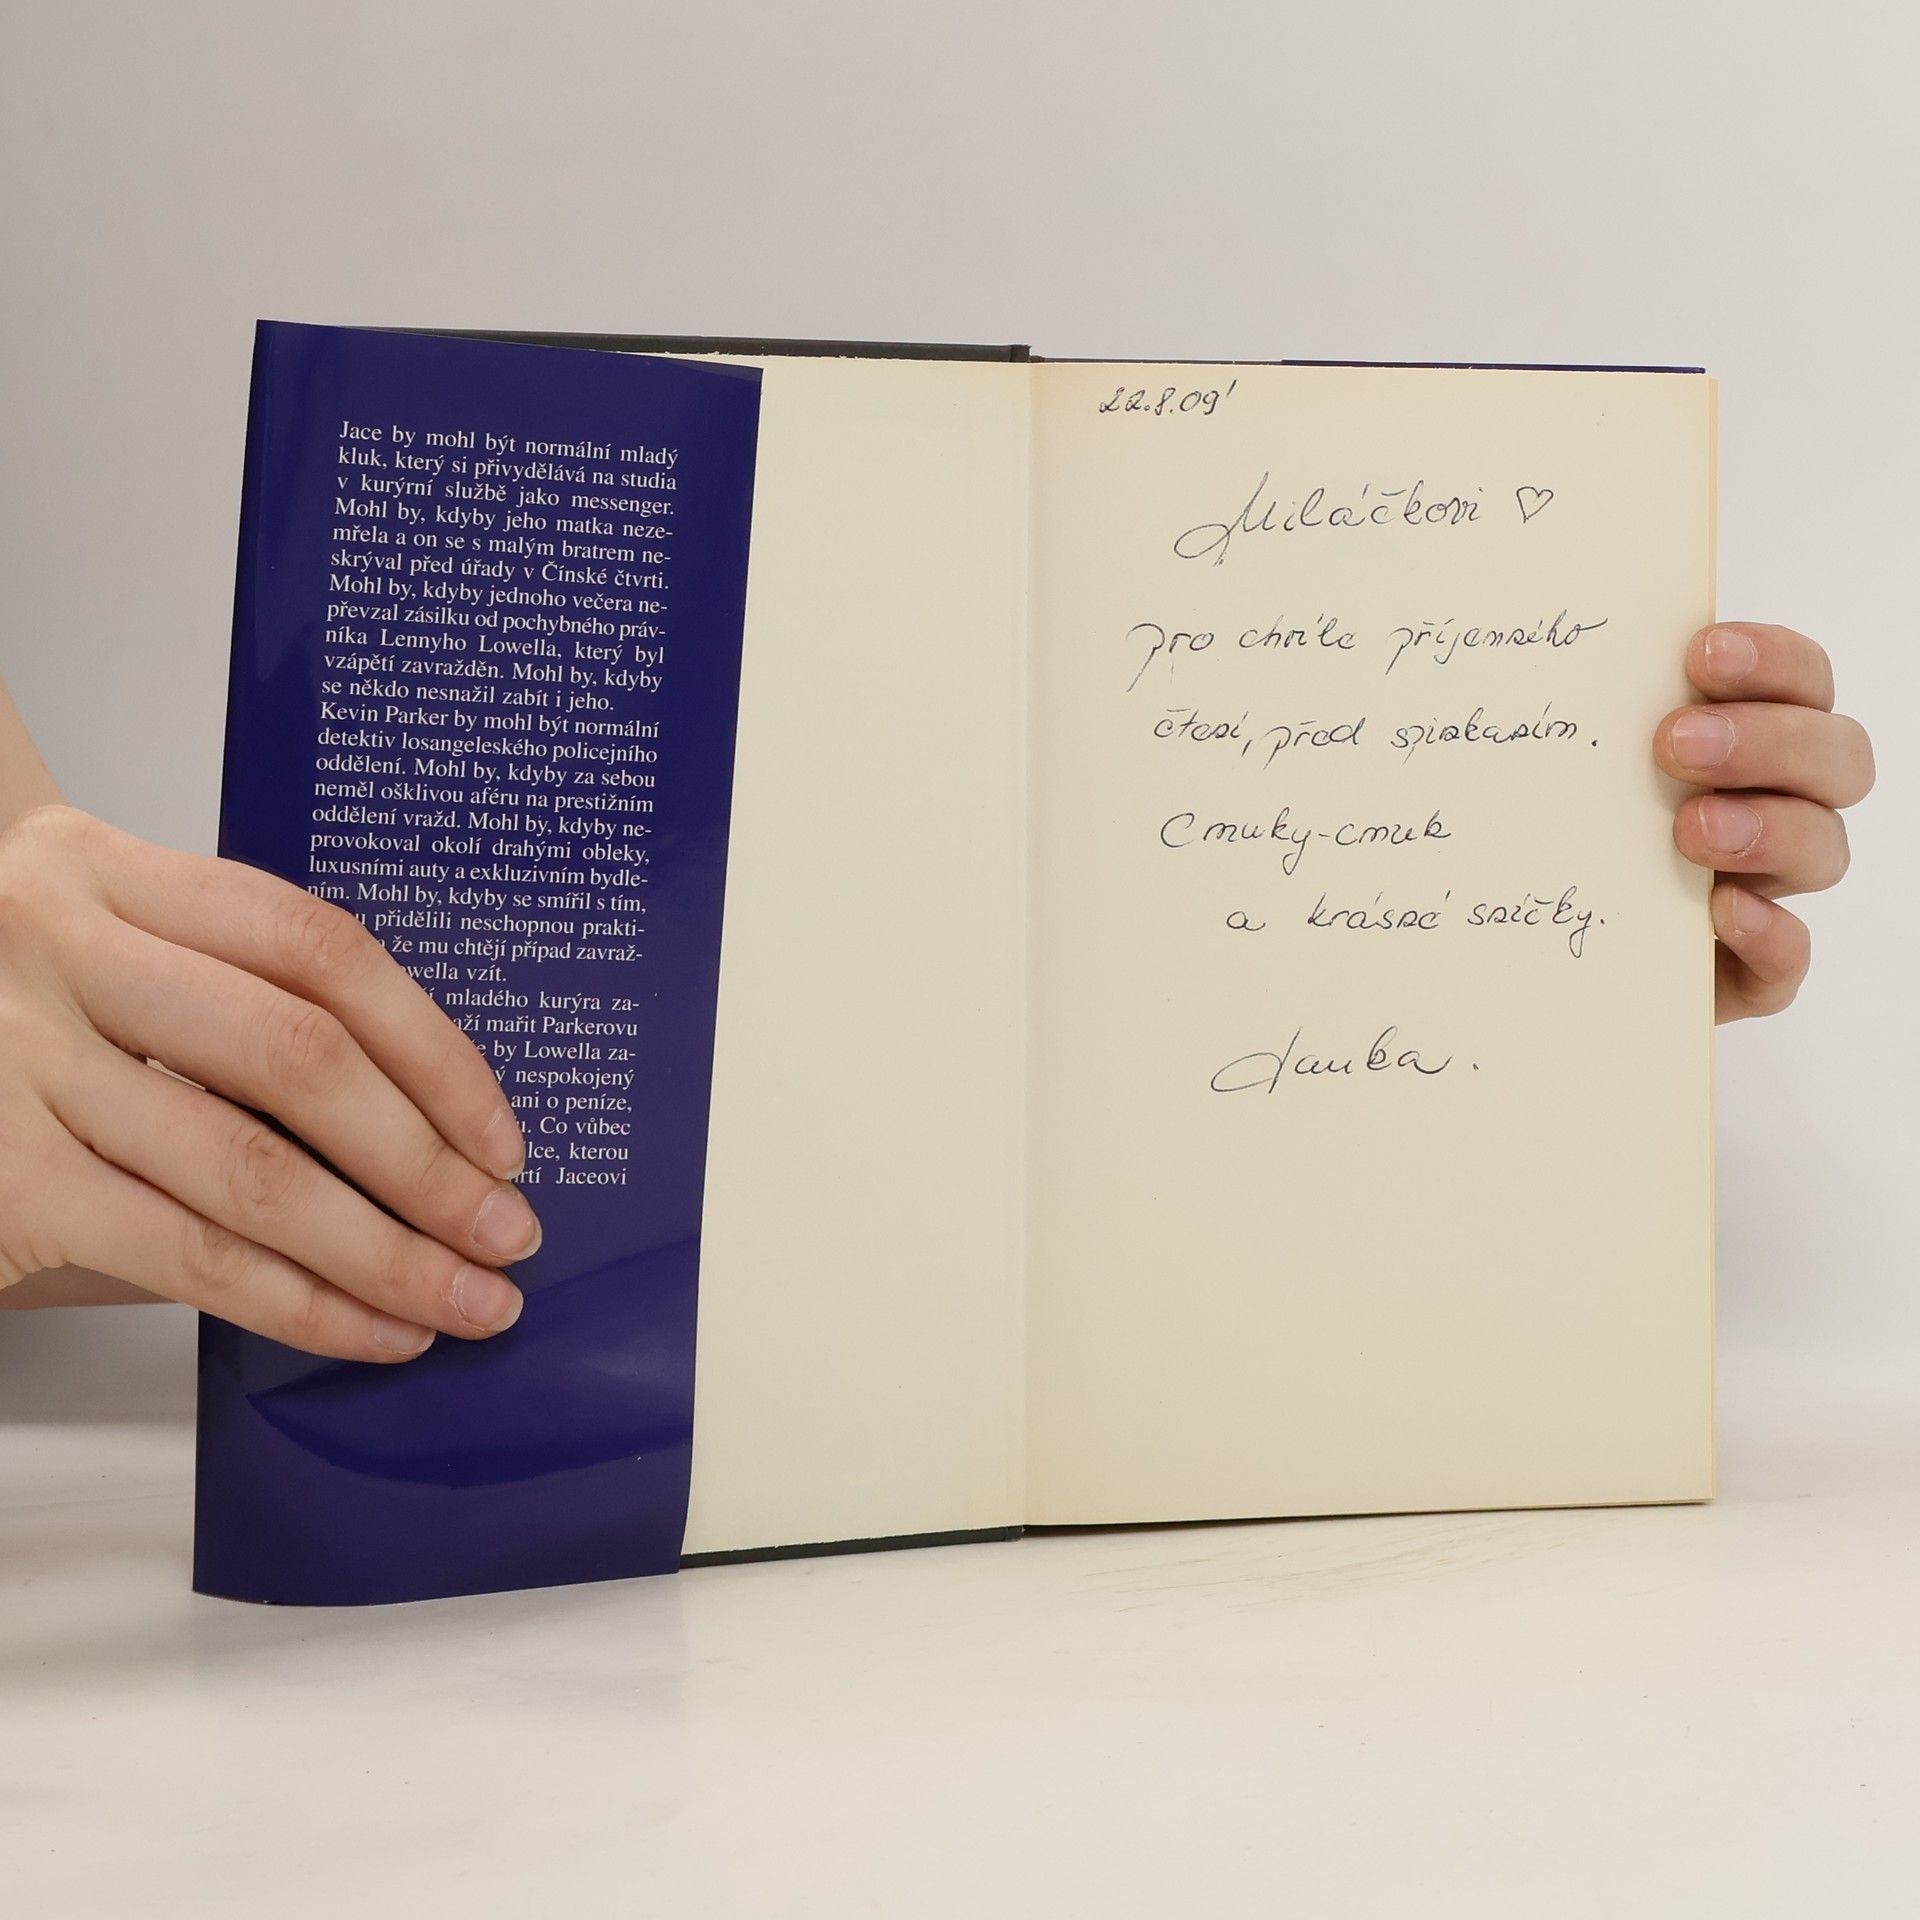 Jace by mohl být normální mladý
kluk, který si přivydělává na studia
v kurýrní službě jako messenger.
Mohl by, kdyby jeho matka neze-
mřela a on se s malým bratrem ne-
skrýval před úřady v Čínské čtvrti.
Mohl by, kdyby jednoho večera ne-
převzal zásilku od pochybného práv-
níka Lennyho Lowella, který byl
vzápětí zavražděn. Mohl by, kdyby
se někdo nesnažil zabít i jeho.
Kevin Parker by mohl být normální
detektiv losangeleského policejního
oddělení. Mohl by, kdyby za sebou
neměl ošklivou aféru na prestižním
oddělení vražd. Mohl by, kdyby ne-
provokoval okolí drahými obleky,
luxusními auty a exkluzivním bydle-
ním. Mohl by, kdyby se smířil s tím,
přidělili neschopnou prakti-
že mu chtějí případ zavraž-
wella vzít.
mladého kurýra za-
aží mařit Parkerovu
by Lowella za-
nespokojený
ani o peníze,
Co vůbec
lce, kterou
rtí Jaceovi
22.8.09'
Miláčkovi ♡
pro chvíle příjemného
čtení, před spinkaním.
Cmuky-cmuk
a krásné sníčky.
Janka.